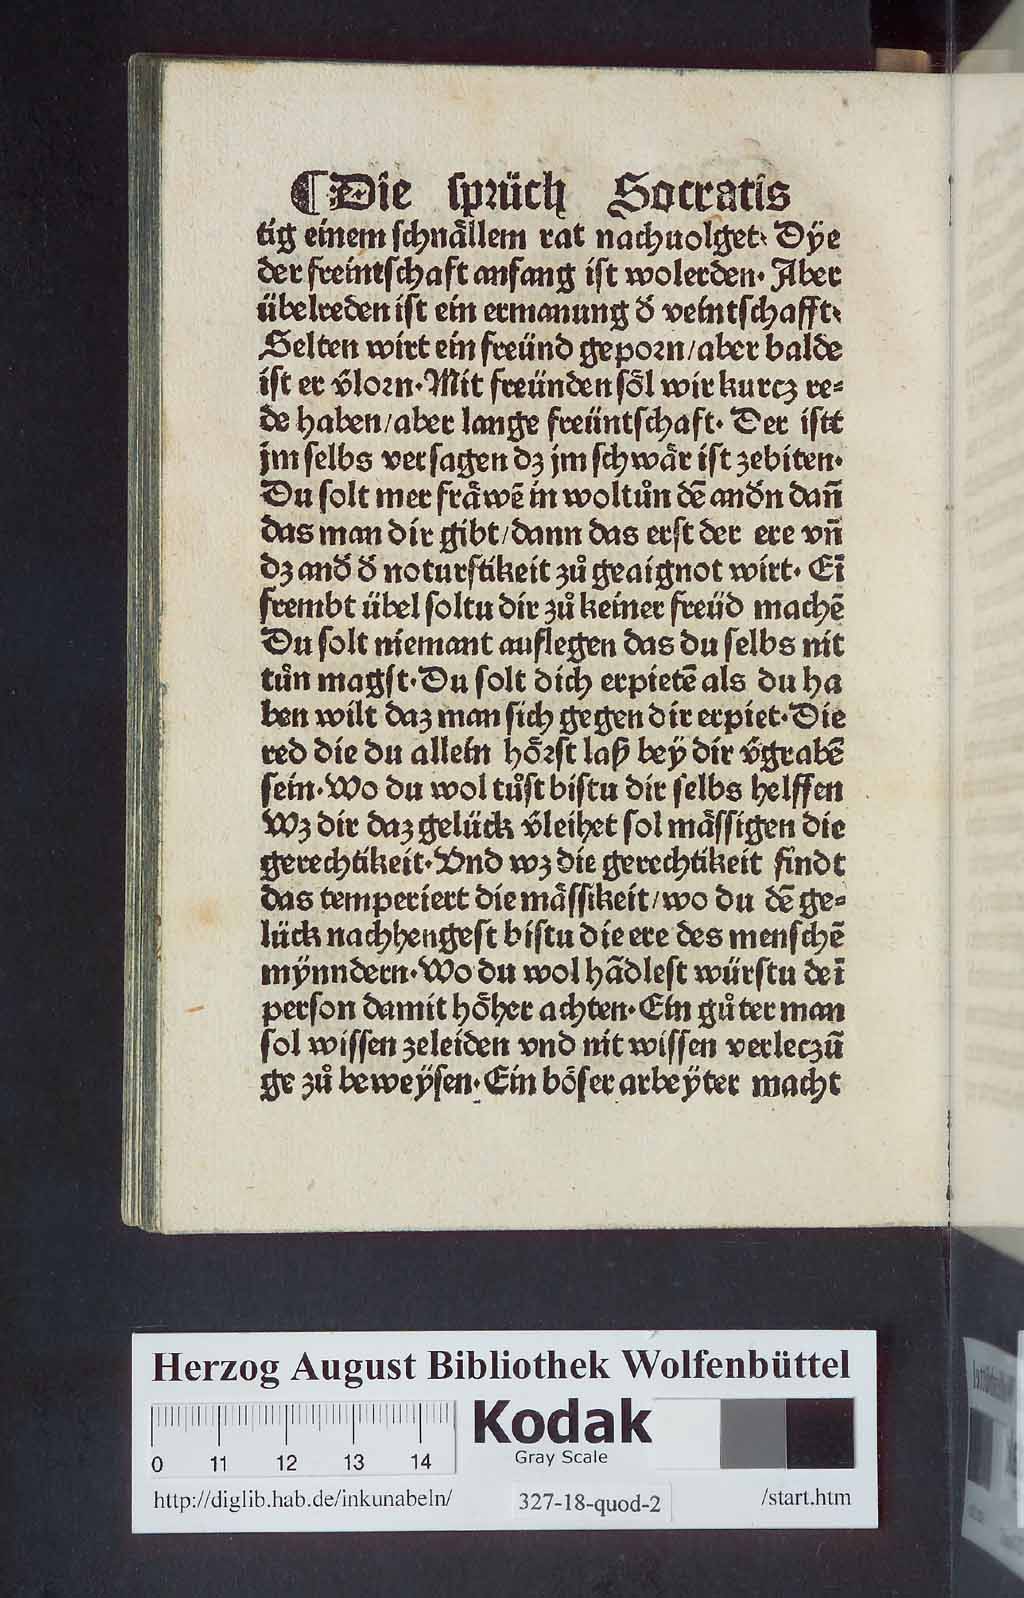 ¶Die sprüch Socratis
tig einem schnällem rat nachuolget. Dÿe
der freintschaft anfang ist wolerden. Aber
übelreden ist ein ermanung d̕ veintschafft.
Selten wirt ein freünd geporn/aber balde
ist er v̕lorn. Mit freünden söl wir kurcz re⸗
de haben/aber lange freüntschaft. Der istt
jm selbs versagen dz jm schwär ist zebiten.
Du solt mer fräwē in woltůn dē and̕n dañ
das man dir gibt/dann das erst der ere vñ
dz and̕ d̕ noturftikeit zů geaignot wirt. Eī
frembt übel soltu dir zů keiner freüd machē
Du solt niemant auflegen das du selbs nit
tůn magst. Du solt dich erpietē als du ha
ben wilt daz man sich gegen dir erpiet. Die
red die du allein hörst laß beÿ dir v̕grabē
sein. Wo du wol tůst bistu dir selbs helffen
Wz dir daz gelück v̕leihet sol mässigen die
gerechtikeit. Vnd wz die gerechtikeit findt
das temperiert die mässikeit/wo du dē ge⸗
lück nachhengest bistu die ere des menschē
mÿnndern. Wo du wol hādlest würstu deī
person damit höher achten. Ein gůter man
sol wissen zeleiden vnd nit wissen verleczū
ge zů beweÿsen. Ein böser arbeÿter macht
Herzog August Bibliothek Wolfenbüttel
Kodak
Gray Scale
0 11 12 13 14
http://diglib.hab.de/inkunabeln/ 327-18-quod-2 /start.htm